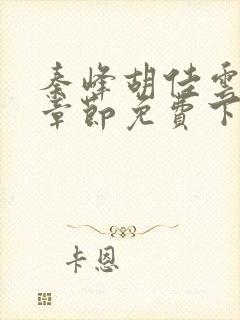 秦峰胡佳雲
章節免費下
卡恩